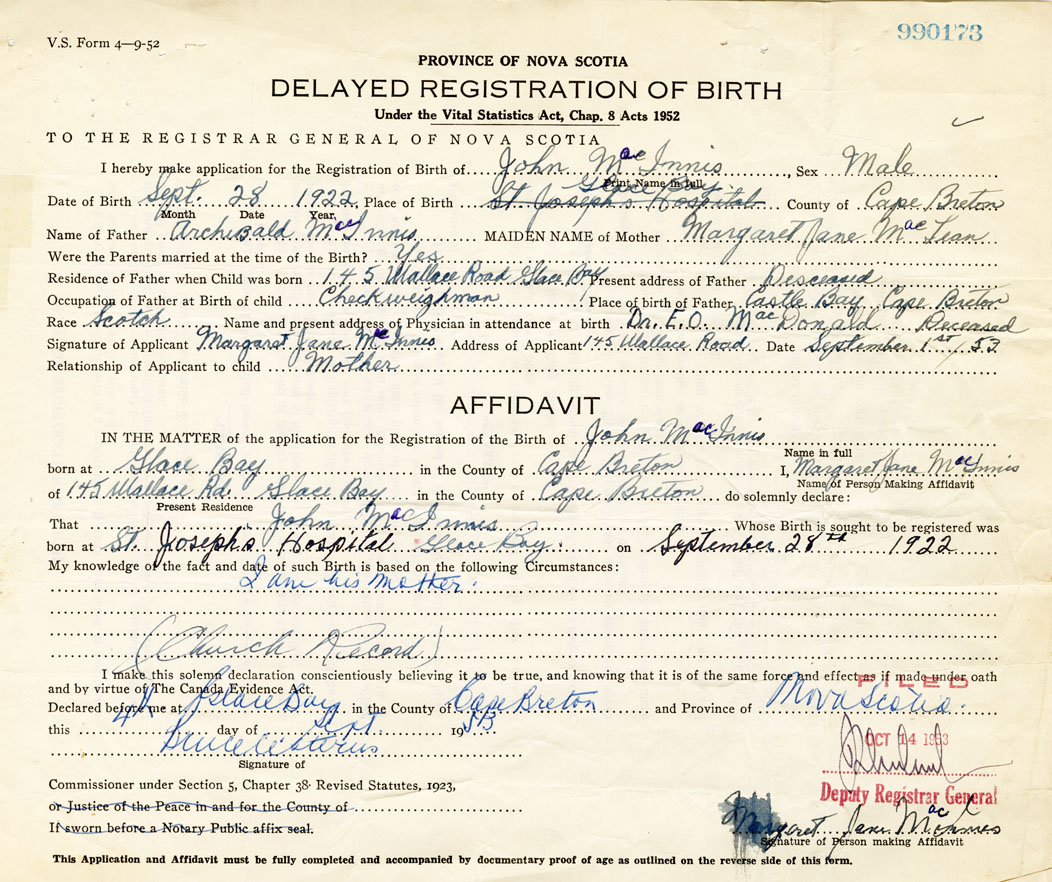 V.S. Form 4—9-52
990173
PROVINCE OF NOVA SCOTIA
DELAYED REGISTRATION OF BIRTH
Under the Vital Statistics Act, Chap. 8 Acts 1952
TO THE REGISTRAR GENERAL OF NOVA SCOTIA
I hereby make application for the Registration of Birth of John MacInnis, Sex Male
Print Name in full
Glace Bay
Date of Birth Sept. 28 1922, Place of Birth St Joseph's Hospital County of Cape Breton
Month Date Year,
Name of Father Archibald MacInnis MAIDEN NAME of Mother Margaret Jane MacLean
Were the Parents married at the time of the Birth? Yes
Residence of Father when Child was born 145 Wallace Road Glace Bay Present address of Father Desceased
Occupation of Father at Birth of child Checkweighman Place of birth of Father Castle Bay Cape Breton
Race Scotch Name and present address of Physician in attendance at birth Dr. E.O. MacDonald Deceased
Signature of Applicant Margaret Jane MacInnis Address of Applicant 145 Wallace Road Date September 1st/53
Relationship of Applicant to child Mother
AFFIDAVIT
IN THE MATTER of the application for the Registration of the Birth of John MacInnis
Name in full
born at Glace Bay in the County of Cape Breton I, Margaret Jane MacInnis
Name of Person Making Affidavit
of 145 Wallace Rd. Glace Bay in the County of Cape Breton do solemnly declare:
Present Residence
That John MacInnis Whose Birth is sought to be registered was
born at St. Joseph's Hospital Glace Bay on September 28th 1922
My knowledge of the fact and date of such Birth is based on the following Circumstances:
I am his mother.
(Church Record)
I make this solemn declaration conscientiously believing it to be true, and knowing that it is of the same force and effect as if made under oath
and by virtue of The Canada Evidence Act.
FILED
Declared before me at Glace Bay in the County of Cape Breton and Province of Nova Scotia.
this 4th day of Sept. 1953
OCT 14 1953
Signature of
Deputy Registrar General
Commissioner under Section 5, Chapter 38 Revised Statutes, 1923,
or Justice of the Peace in and for the County of
If sworn before a Notary Public affix seal.
Margaret Jane MacInnes
Signature of Person making Affidavit
This Application and Affidavit must be fully completed and accompanied by documentary proof of age as outlined on the reverse side of this form.